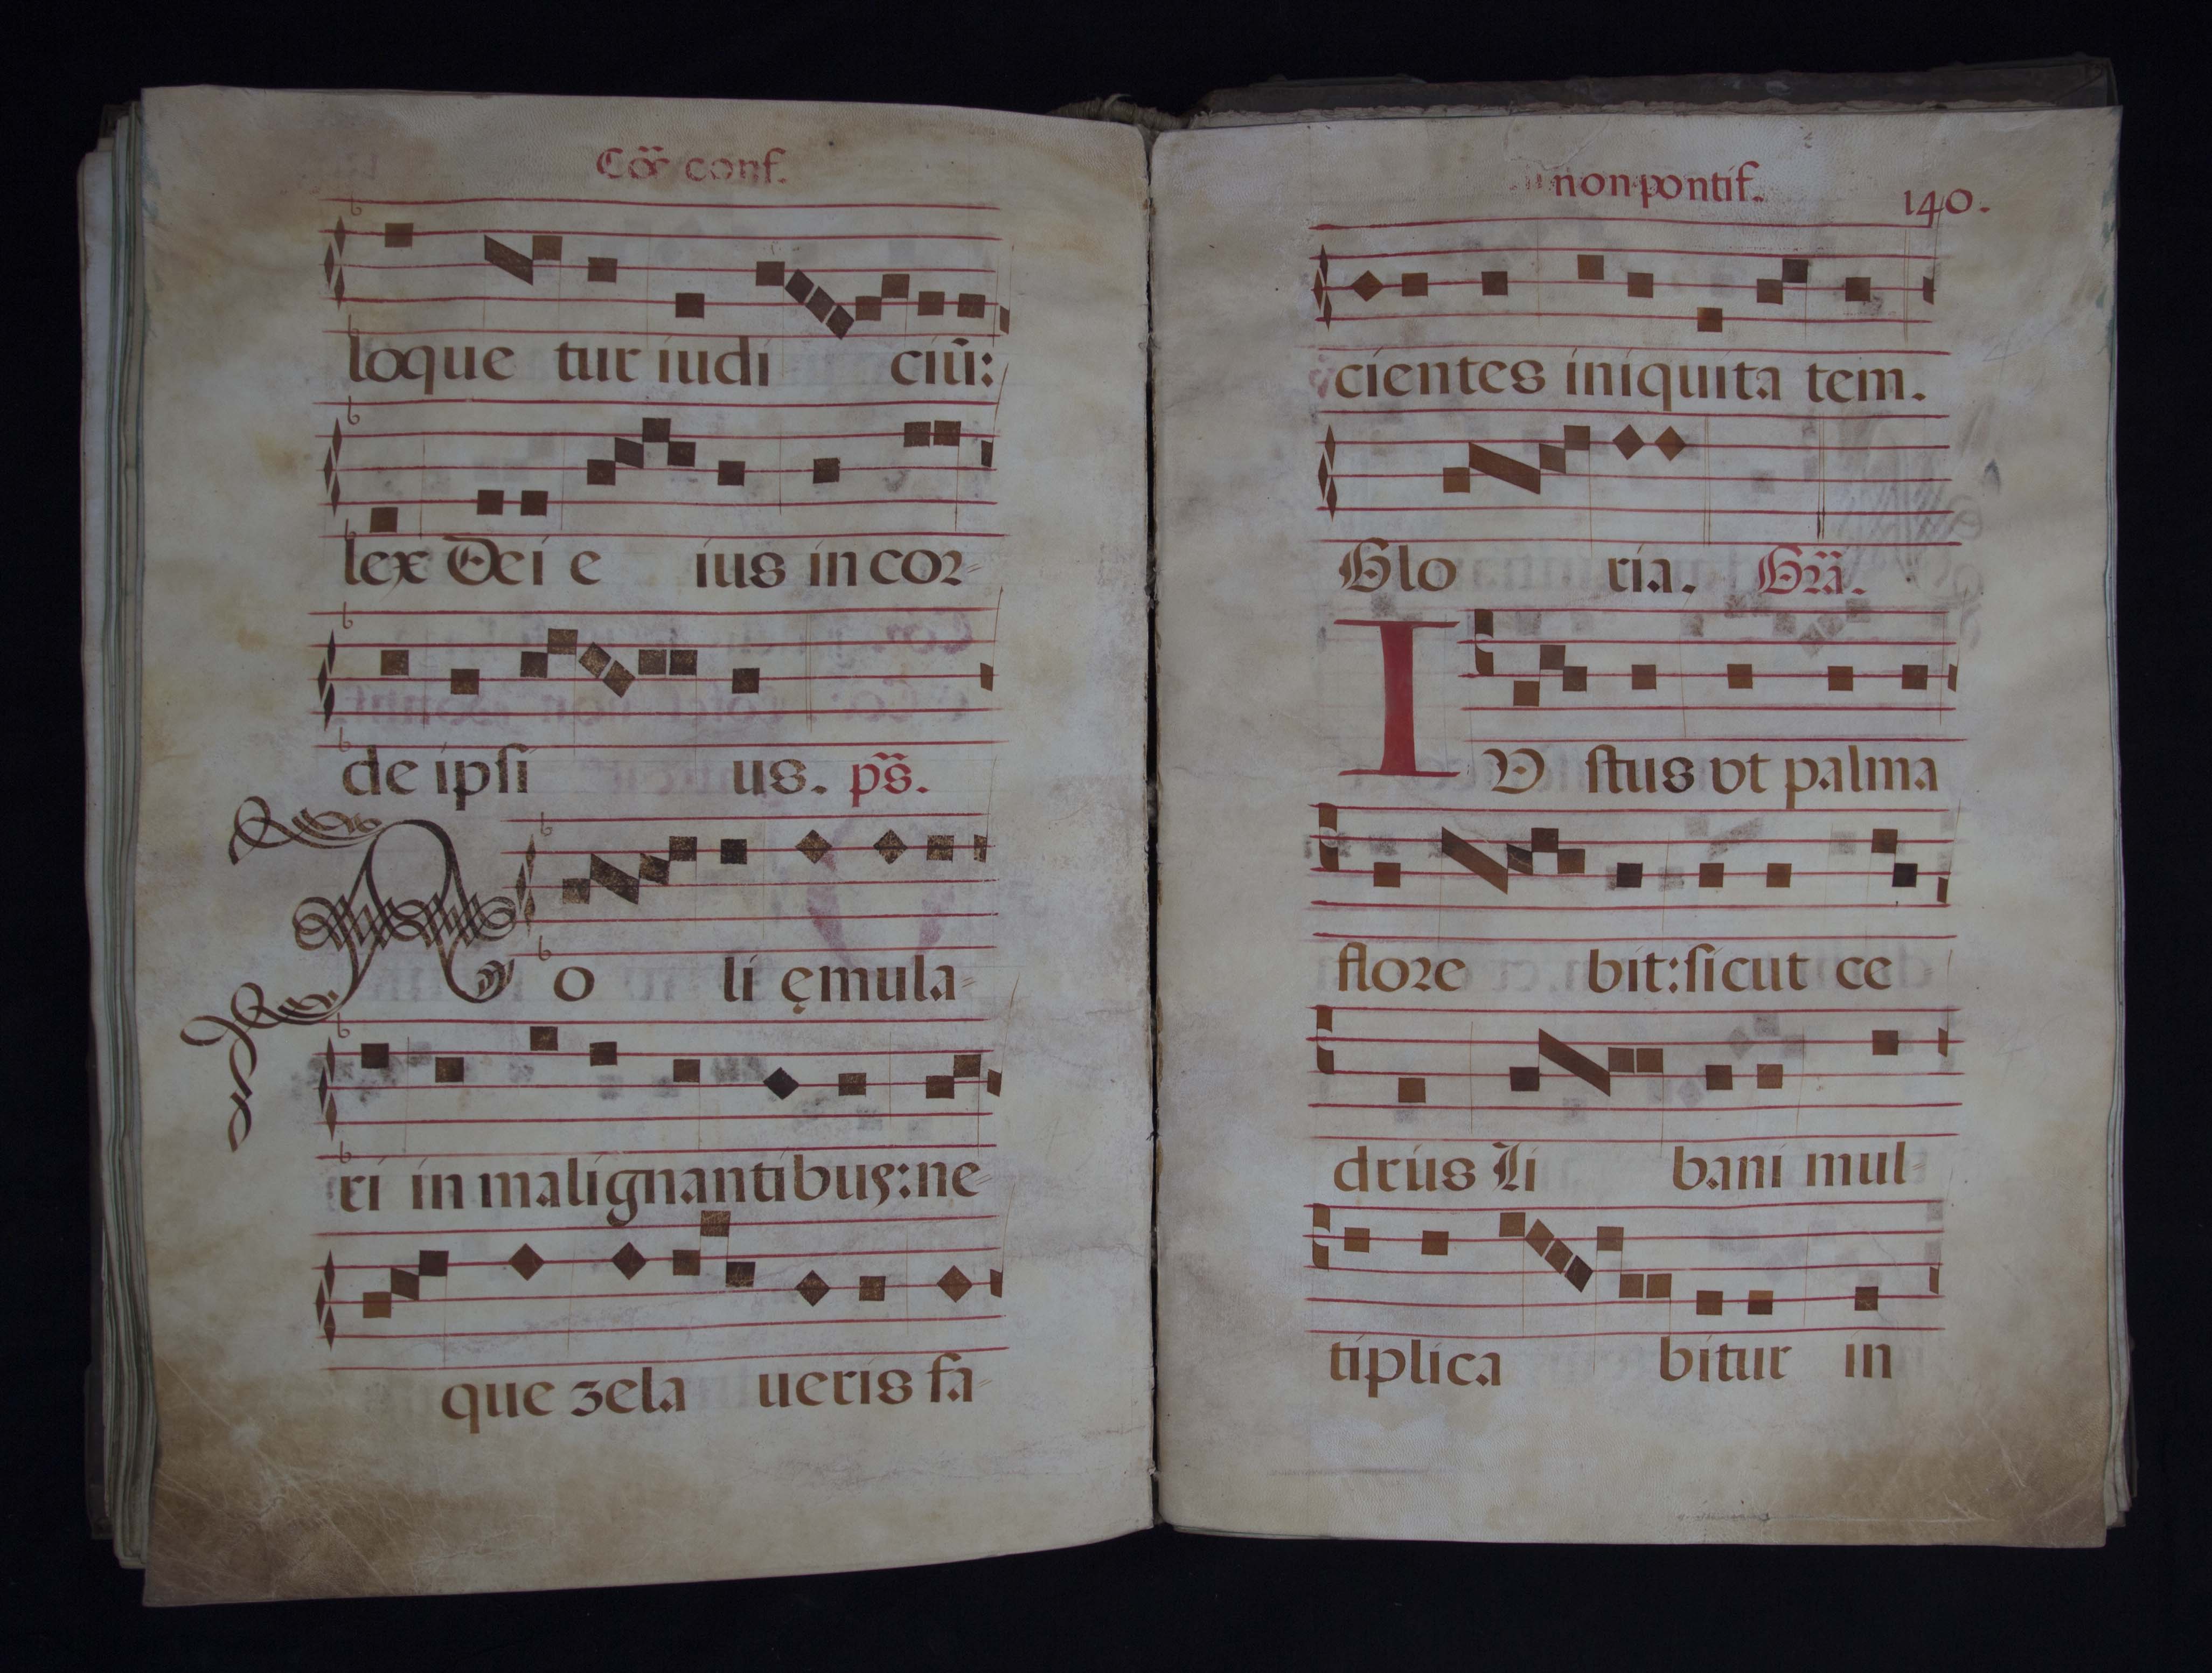 Cōē conf.
loque tur iudi ciū:
lex Dei e ius in cor-
de ipsi us. p̄s.
No li ęmula-
ri in malignantibus: ne-
que zela ueris fa-
non pontif. 140.
cientes iniquita tem.
Glo ria. Grā.
IU stus vt palma
flore bit: sicut ce
drus Li bani mul-
tiplica bitur in